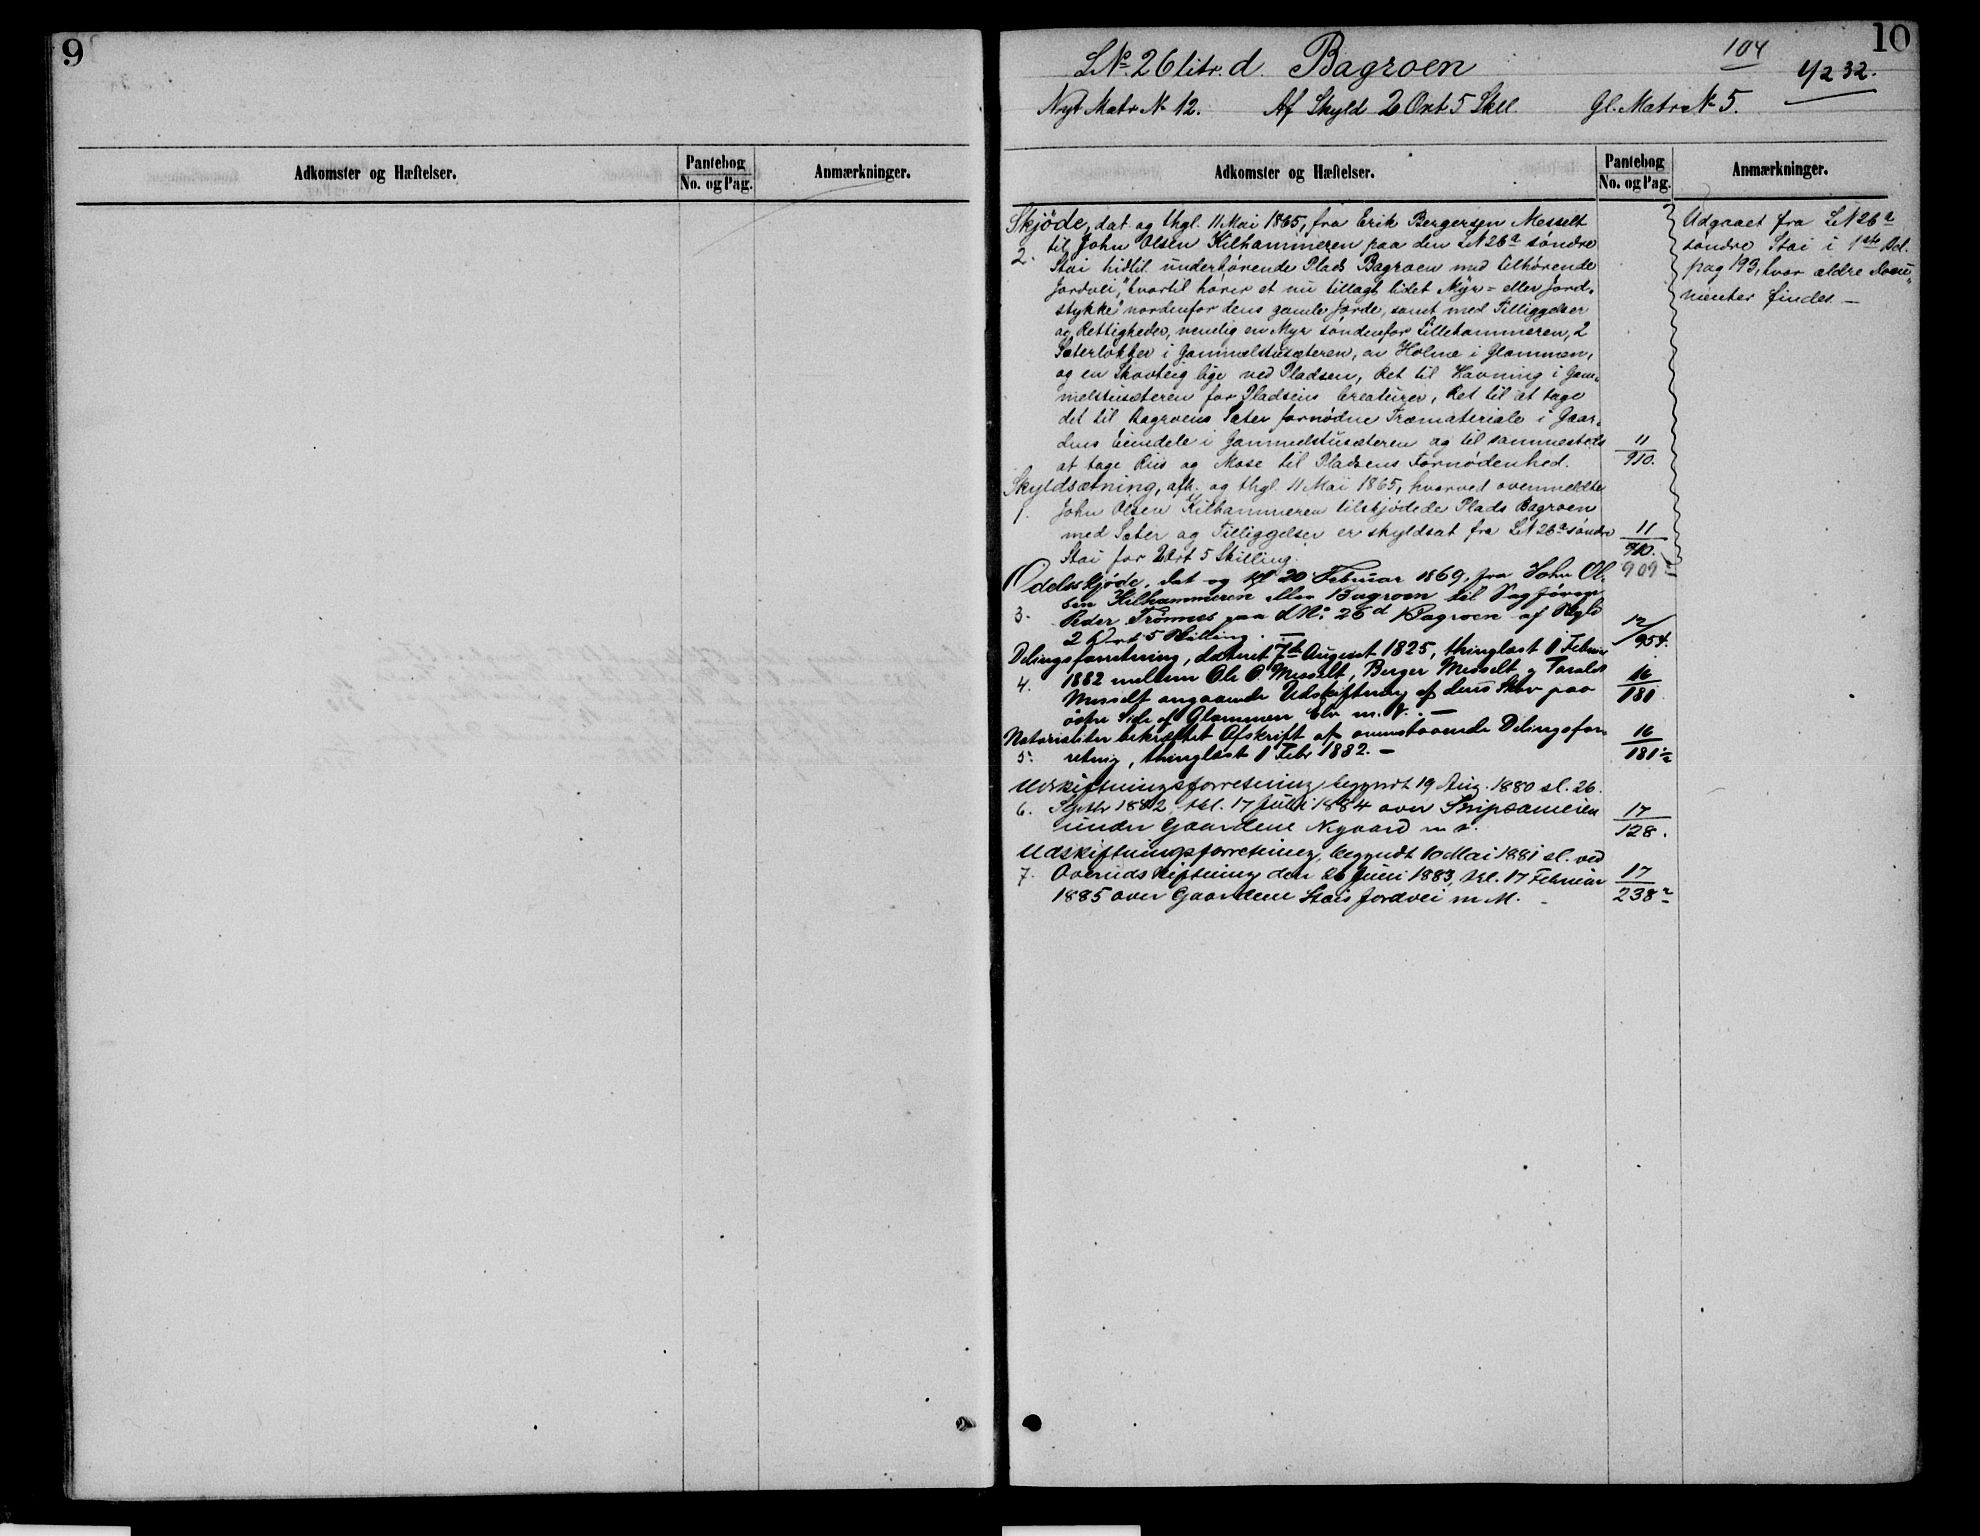 9
Adkomster og Hæftelser.
Pantebog
No. og Pag.
Anmærkninger.
10
LNo. 26 litr. d. Bagroen
104
4/2 32.
Nyt Matr No 12. Af Skyld 2 Ort 5 Skll. Gl. Matr No 5.
Adkomster og Hæftelser.
Pantebog
No. og Pag.
Anmærkninger.
Skjöde, dat. og thgl. 11 Mai 1865, fra Erik Bergersen Messelt
2. til John Olsen Kilhammeren paa den LN 26a söndre
Stai hidtil underhörende Plads Bagroen med tilhörende
Jordvei, "hvortil hörer et nu tillagt lidet Myr- eller Jord-
stykke" nordenfor dens gamle Jorde, samt med Tilliggelser
og Rettigheder, nemlig en Myr söndenfor Lillehammeren, 2
Sæterlökker i Gammelstusæteren, en Holme i Glommen,
og en Skovteig lige ved Pladsen, Ret til Havning i Gam-
melstusæteren for Pladsens Creaturer, Ret til at tage
det til Bagroens Sæter fornødne Træmateriale i Gaar-
dens Eiendele i Gammelstusæteren og til sammesteds
at tage Riis og Mose til Pladsens Fornödenhed.
11/910.
Skyldsætning, afh. og thgl. 11 Mai 1865, hvorved ovenmeldte
1. John Olsen Kilhammeren tilskjödede Plads Bagroen
med Sæter og Tilliggelser er skyldsat fra LN 26a söndre
Stai for 2 Ort 5 Skilling.
11/910.
909
Odelsskjöde, dat og tgl 20 Februar 1869, fra John Ol-
sen Kilhammeren eller Bagroen til Sagförer
3. Peder Trönnes paa LNo. 26d Bagroen af Skyld
2 Ort 5 Skilling. —
12/954.
Delingsforretning, dateret 7de August 1825, thinglæst 1 Februar
4. 1882 mellem Ole O. Messelt, Berger Messelt og Tarald
Messelt angaaende Udskiftning af deres Skov paa
östre Side af Glommen Elv m. V. —
16/181
Notarialiter bekræftet Afskrift af ovenstaaende Delingsfor-
5. retning, thinglæst 1 Febr 1882. —
16/181½
Udskiftningsforretning begyndt 19 Aug. 1880 sl. 26.
6. Septbr 1882, tgl. 17 Juli 1884 over Snipsameien
under Gaardene Nygaard m. v.
17/128.
Udskiftningsforretning, begyndt 10 Mai 1881 sl. ved
7. Overudskiftning den 26 Juni 1883, tgl. 17 Februar
1885 over Gaardene Stais Jordvei m. M.
17/238
Udgaaet fra LN 26a
söndre Stai i 1ste Del.
pag 193, hvor ældre Docu-
menter findes. —